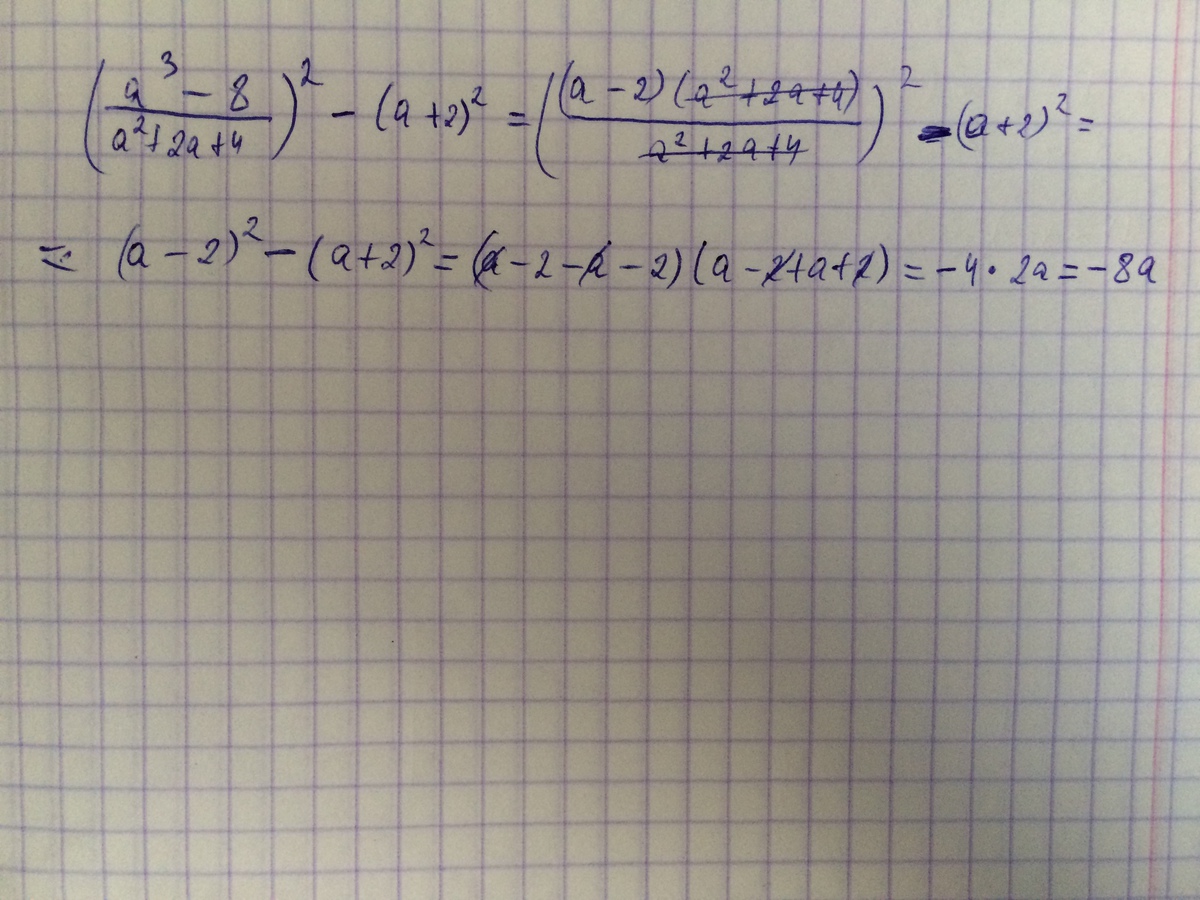 ((a³ - 8)/(a² + 2a + 4))² - (a + 2)² = ((a - 2)(a² + 2a + 4)/(a² + 2a + 4))² - (a + 2)² =
= (a - 2)² - (a + 2)² = (a - 2 - a - 2)(a - 2 + a + 2) = -4 · 2a = -8a